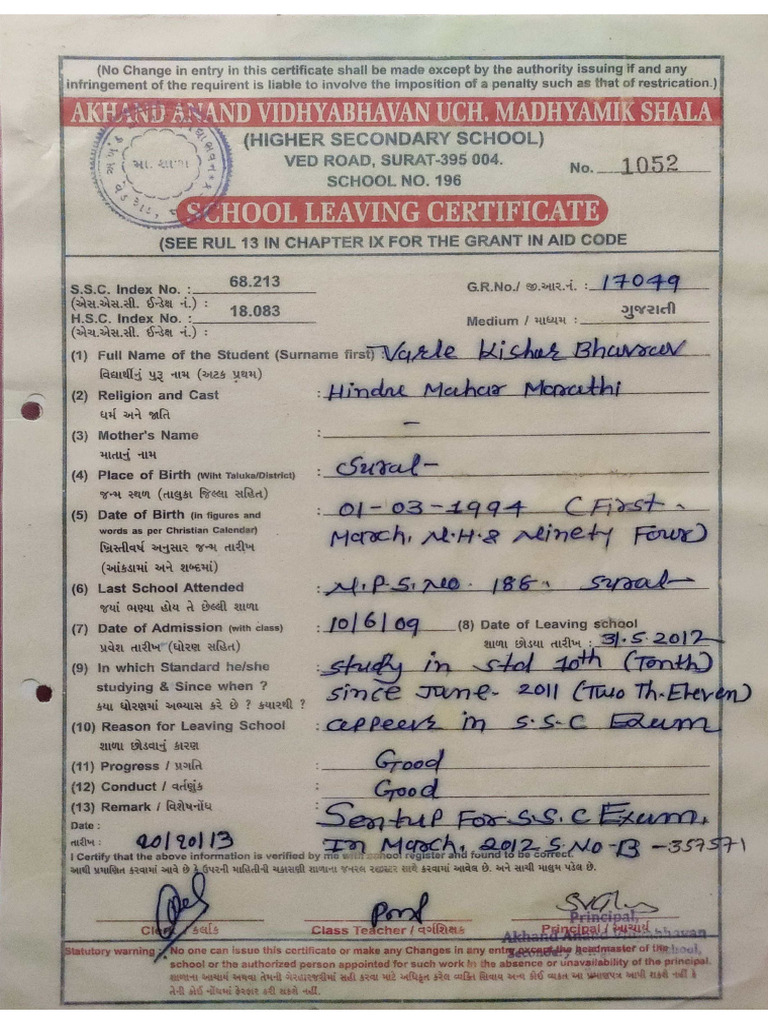 (No Change in entry in this certificate shall be made except by the authority issuing if and any
infringement of the requirent is liable to involve the imposition of a penalty such as that of restrication.)
AKHAND ANAND VIDHYABHAVAN UCH. MADHYAMIK SHALA
(HIGHER SECONDARY SCHOOL)
VED ROAD, SURAT-395 004.
No. 1052
SCHOOL NO. 196
મા. શાળા
SCHOOL LEAVING CERTIFICATE
(SEE RUL 13 IN CHAPTER IX FOR THE GRANT IN AID CODE
S.S.C. Index No. : 68.213 G.R.No./ જી.આર.નં. : 17049
(એસ.એસ.સી. ઈન્ડેક્ષ નં.) :
H.S.C. Index No. : 18.083 Medium / માધ્યમ : ગુજરાતી
(એચ.એસ.સી. ઈન્ડેક્ષ નં.) :
(1) Full Name of the Student (Surname first) : Varle Kishor Bhavrav
વિદ્યાર્થીનું પુરૂ નામ (અટક પ્રથમ)
(2) Religion and Cast : Hindu Mahar Marathi
ધર્મ અને જાતિ
(3) Mother's Name : -
માતાનું નામ
(4) Place of Birth (Wiht Taluka/District) : Surat
જન્મ સ્થળ (તાલુકા જિલ્લા સહિત)
(5) Date of Birth (in figures and : 01-03-1994 (First
words as per Christian Calendar) March, N.H.& Ninety Four)
ખ્રિસ્તીવર્ષ અનુસાર જન્મ તારીખ
(આંકડામાં અને શબ્દમાં)
(6) Last School Attended : N.P.S.No. 186. Surat
જયાં ભણ્યા હોય તે છેલ્લી શાળા
(7) Date of Admission (with class) : 10/6/09 (8) Date of Leaving school
પ્રવેશ તારીખ (ધોરણ સહિત) શાળા છોડયા તારીખ : 31.5.2012
(9) In which Standard he/she : study in std 10th (Tenth)
studying & Since when ? since June- 2011 (Two Th.Eleven)
કયા ધોરણમાં અભ્યાસ કરે છે ? કયારથી ? :
(10) Reason for Leaving School : appeer in S.S.C Exam
શાળા છોડવાનું કારણ
(11) Progress / પ્રગતિ : Good
(12) Conduct / વર્તણુંક : Good
(13) Remark / વિશેષનોંધ : Sentup For S.S.C Exam,
Date :
તારીખ : 20/20/13 In March, 2012 S.No-B-357571
I Certify that the above information is verified by me with school register and found to be correct.
આથી પ્રમાણિત કરવામાં આવે છે કે ઉપરની માહિતીની ચકાસણી શાળાના જનરલ રજીસ્ટર સાથે કરવામાં આવેલ છે. અને સાચી માલુમ પડેલ છે.
Clerk / કલાર્ક Class Teacher / વર્ગશિક્ષક Principal / આચાર્ય
Principal,
Akhand Anand Vidhyabhavan
Secondary School,
Statutory warning : No one can issue this certificate or make any Changes in any entry except the headmaster of the
school or the authorized person appointed for such work in the absence or unavailability of the principal.
શાળાના આચાર્ય અથવા તેમની ગેરહાજરીમાં સહી કરવા માટે અધિકૃત કરેલ વ્યક્તિ સિવાય અન્ય કોઈ વ્યકત આ પ્રમાણપત્ર આપી શકશે નહીં કે
તેની કોઈ નોંધમાં ફેરફાર કરી શકશે નહીં.